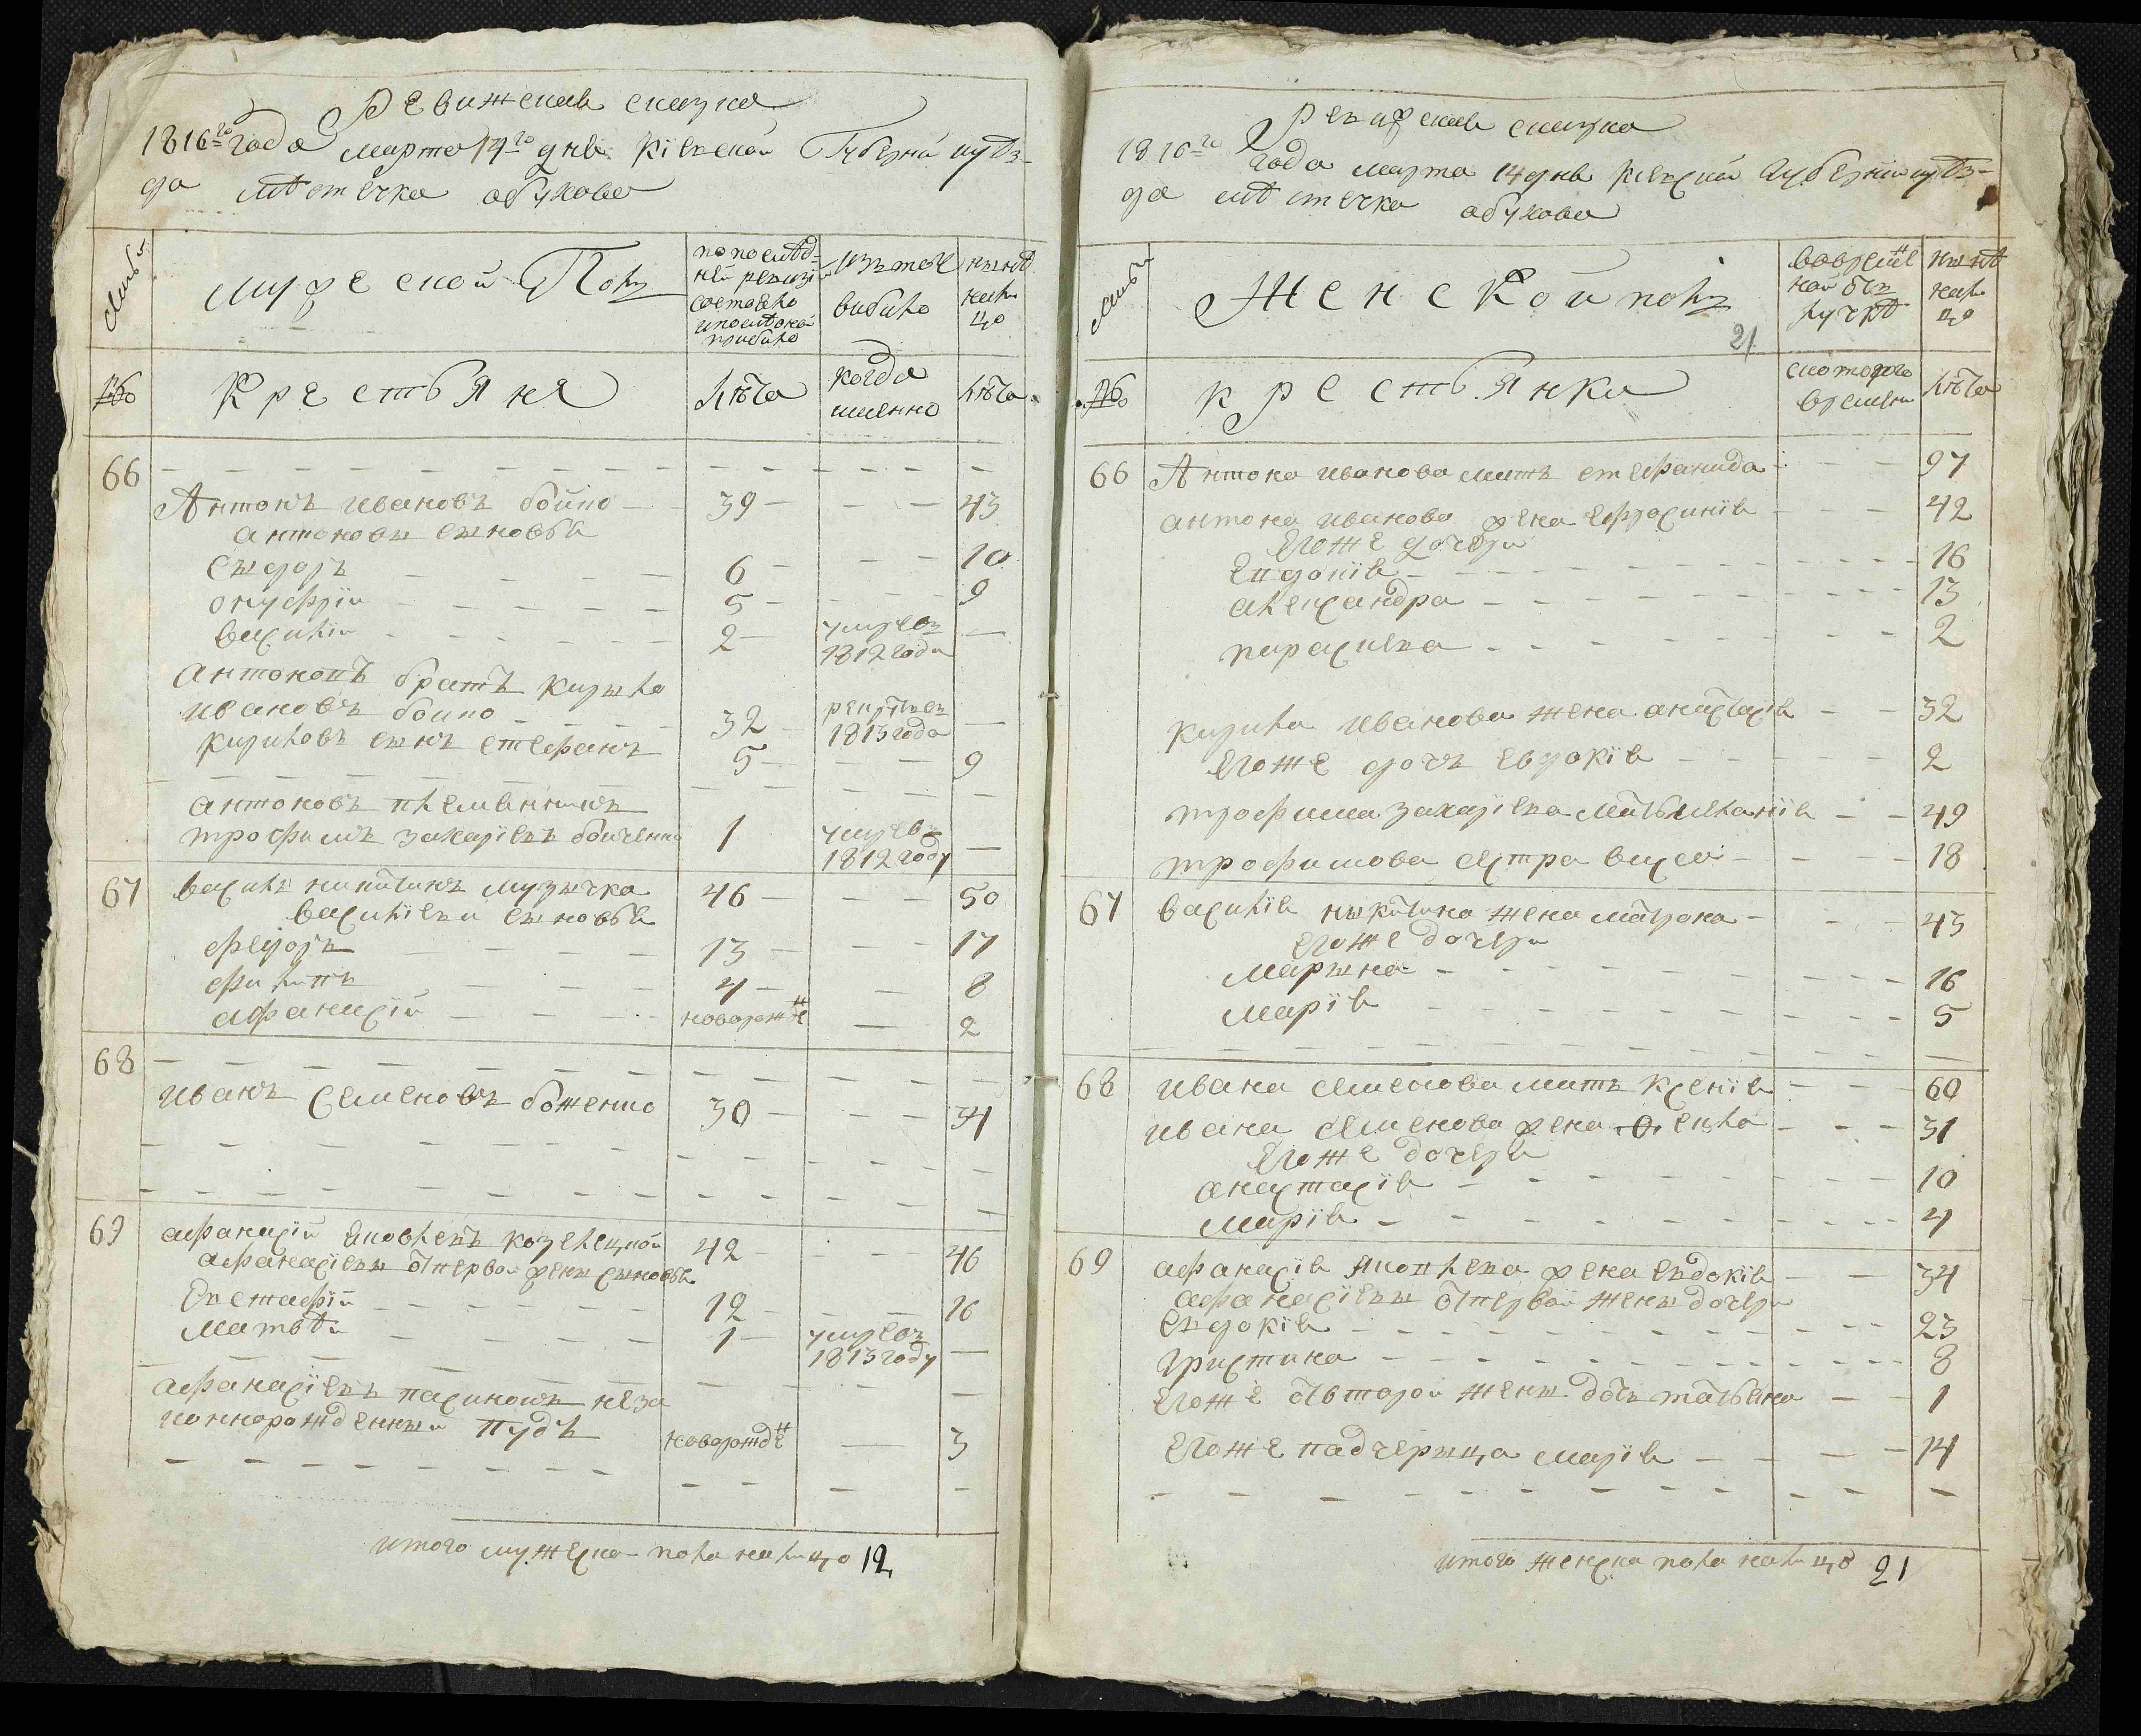 Ревижская сказка
1816го года марта 14го дня Кіевской Губерніи и уѣз-
да мѣстечка обухова
Семьи
мужеской Полъ
по послѣд-
ней ревизіи
состояло
и послѣ оной
прибыло
изъ того
выбыло
нынѣ
нали
цо
№
Крестьяне
лѣта
когда
именно
лѣта
66
Антонъ ивановъ бойко 39 43
антоновы сыновья
сыдоръ 6 10
онуфрій 5 9
василій 2 умре въ
1812 года
антоновъ братъ кирыло
ивановъ бойко 32 рекрутъ въ
1813 года
кириловъ сынъ стефанъ 5 9
антоновъ племянникъ
трофимъ захаріевъ бойченко 1 умре въ
1812 году
67 василь никитинъ музычка 46 50
василіеви сыновья
федоръ 13 17
филипъ 4 8
афанасій новорожде 2
68
иванъ семеновъ боженко 30 34
69 афанасій яковлевъ козелецкой 42 46
афанасіевы отпервой жены сыновья
евстафій 12 16
матвѣй 1 умре въ
1813 году
афанасіевъ пасинокъ неза
коннорожденный пудъ новорожде 3
итого мужеска пола налицо 12
Ревижская сказка
1816го года марта 14 дня кіевской губерніи и уѣз-
да мѣстечка обухова
Семьи
Женской полъ
21
вовреме
ной отъ
лучкѣ
нынѣ
нали
цо
№
крестьянка
скоторого
времени
лѣта
66 Антона иванова мать стефанида 97
антона иванова жена ефросинія 42
егоже дочери
евдокія 16
александра 13
парасков 2
кирила иванова жена анастасія 32
егоже дочь евдокія 2
трофима захаріева мать меланія 49
трофимова сестра васса 18
67 василія никитина жена матрона 43
егоже дочери
марына 16
марія 5
68 ивана семенова мать ксенія 60
ивана семенова жена фекла 31
егоже дочеря
анастасія 10
марія 4
69 афанасія яковлева жена евдокія 34
афанасіевы отпервой жены дочери
евдокія 23
христина 8
егоже отвторой жены дочь татьяна 1
егоже падчерыца марія 14
итого женска пола налицо 21